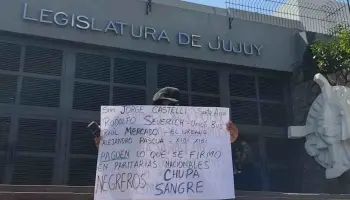 LEGISLATURA DE JUJUY
Sres JORGE CASTELLI Santa Ana
RODOLFO SEVERICH - Unión Bus
RAUL MERCADO - EL URBANO
ALEJANDRO PASCUA - XIBI XIBI
PAGUEN LO QUE SE FIRMO
EN PARITARIAS NACIONALES
NEGREROS CHUPA
SANGRE